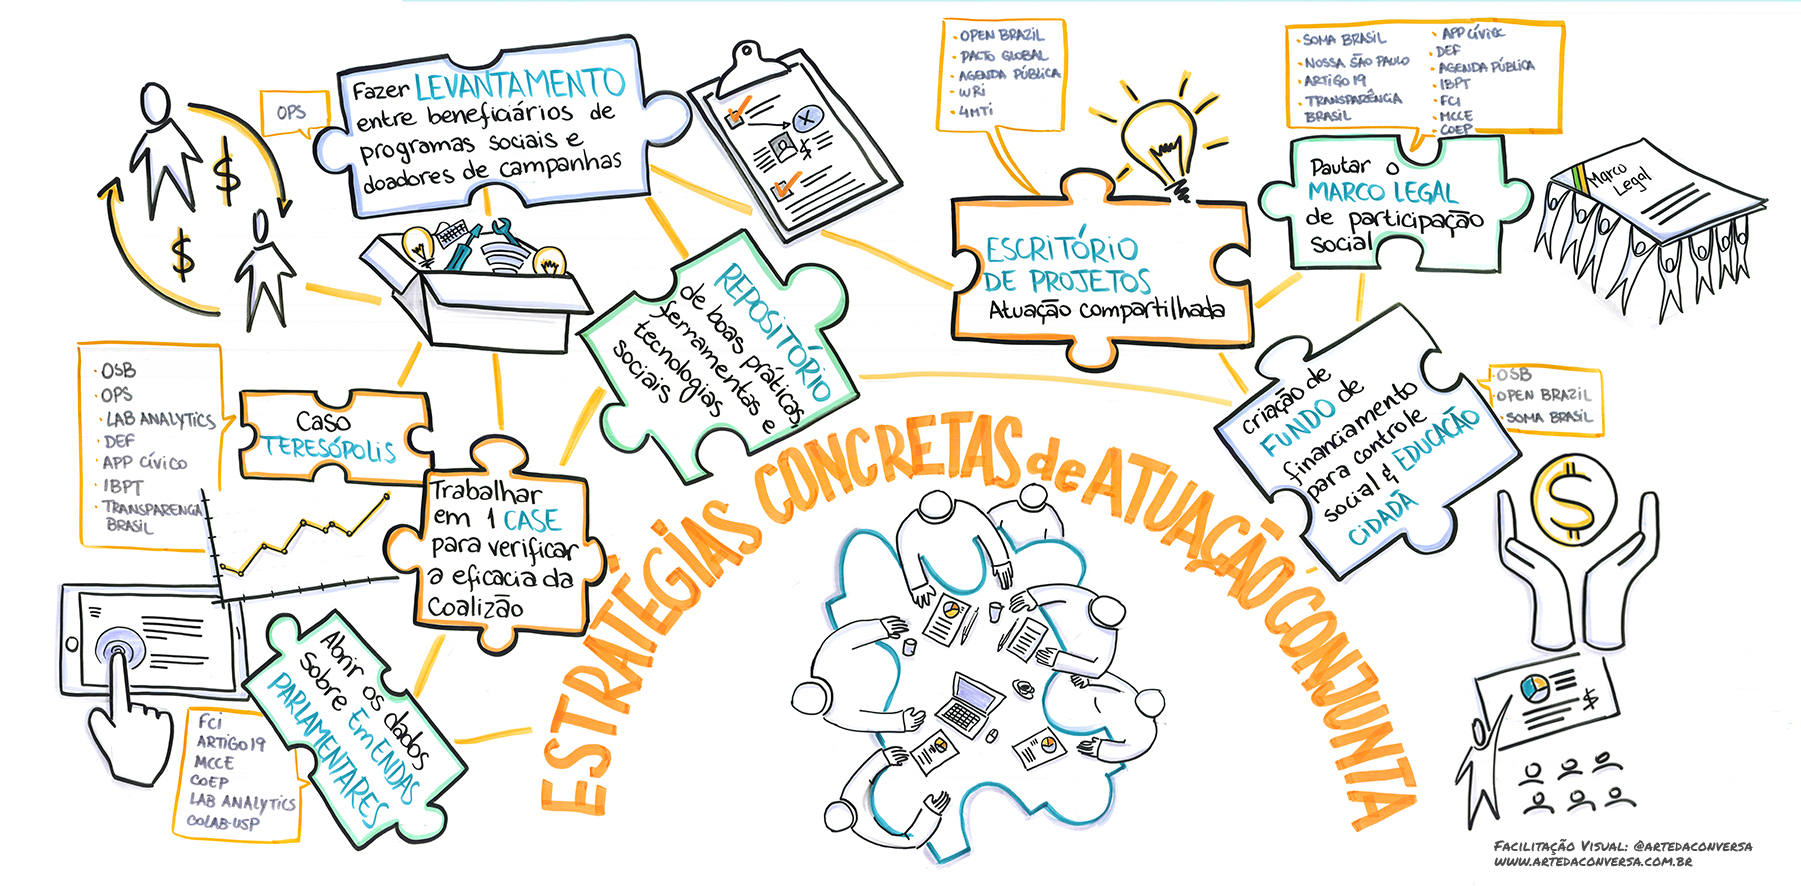 OPS
Fazer LEVANTAMENTO
entre beneficiários de
programas sociais e
doadores de campanhas
$
$
X
$
· OPEN BRAZIL
· PACTO GLOBAL
· AGENDA PÚBLICA
· WRi
· 4MTi
ESCRITÓRIO
DE PROJETOS
Atuação compartilhada
· SOMA BRASIL
· NOSSA SÃO PAULO
· ARTiGO 19
· TRANSPARÊNCIA
BRASIL
· APP CíVICO
· DEF
· AGENDA PÚBLICA
· IBPT
· FCi
· MCCE
· COEP
Pautar o
MARCO LEGAL
de participação
social
Marco
Legal
REPOSITÓRIO
de boas práticas,
ferramentas e
tecnologias
sociais
criação de
FUNDO de
financiamento
para controle
social & EDUCAÇÃO
CIDADÃ
· OSB
· OPEN BRAZIL
· SOMA BRASIL
$
$
· OSB
· OPS
· LAB ANALYTICS
· DEF
· APP CÍVICO
· IBPT
· TRANSPARENCIA
BRASIL
Caso
TERESÓPOLIS
Trabalhar
em 1 CASE
para verificar
a eficacia da
Coalizão
Abrir os dados
sobre EmENDAS
PARLAMENTARES
FCi
ARTiGO19
MCCE
COEP
LAB ANALYTICS
COLAB-USP
ESTRATÉGIAS CONCRETAS de ATUAÇÃO CONJUNTA
Facilitação Visual: @artedaconversa
www.artedaconversa.com.br